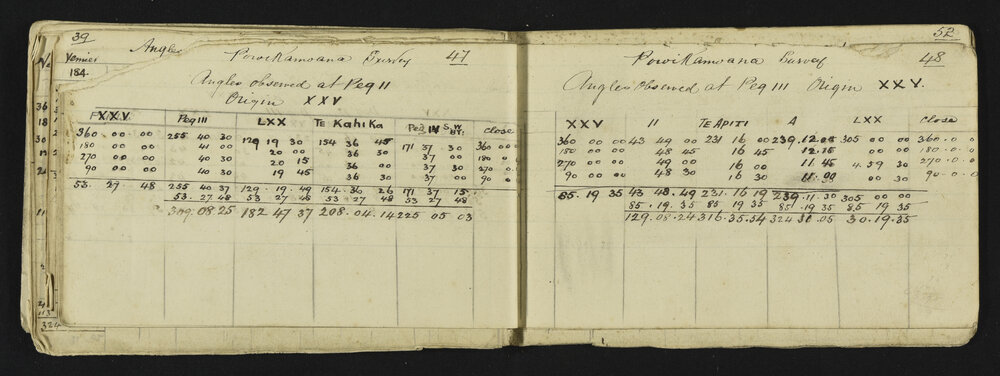 39
Angles
Powikamoana Survey 47
No
Vernier
184.
Angles observed at Peg II
Origin XXV
36
18
30
24
11
324
XXV Peg III LXX TE Kahika Peg IV S.W. BT. Close
360 00 00 255 40 30 129 19 30 154 36 45 171 37 30 360 0 0
180 00 00 41 00 20 00 36 30 37 00 180 0
270 00 00 40 30 20 15 36 00 37 30 270 0 0
90 00 00 40 30 19 45 36 30 37 00 90 0
53. 27 48 255 40 37 129 19 49 154 36 26 171 37 15
53. 27 48 53 27 48 53 27 48 53 27 48
309 08 25 182 47 37 208 04 14 225 05 03
52
Powikamoana Survey 48
Angles Observed at Peg III Origin XXV.
XXV II TE APITI A LXX Close
360 00 00 43 49 00 231 16 00 239 12 00 305 00 00 360 0 0
180 00 00 48 45 16 45 12 15 00 00 180 0 0
270 00 00 49 00 16 00 11 45 4 59 30 270 0 0
90 00 00 48 30 16 30 11 00 00 30 90 0 0
85. 19 35 43 48 49 231 16 19 239 11 30 305 00 00
85 19 35 85 19 35 85 19 35 85 19 35
129 08 24 316 35 54 324 31 05 30 19 35